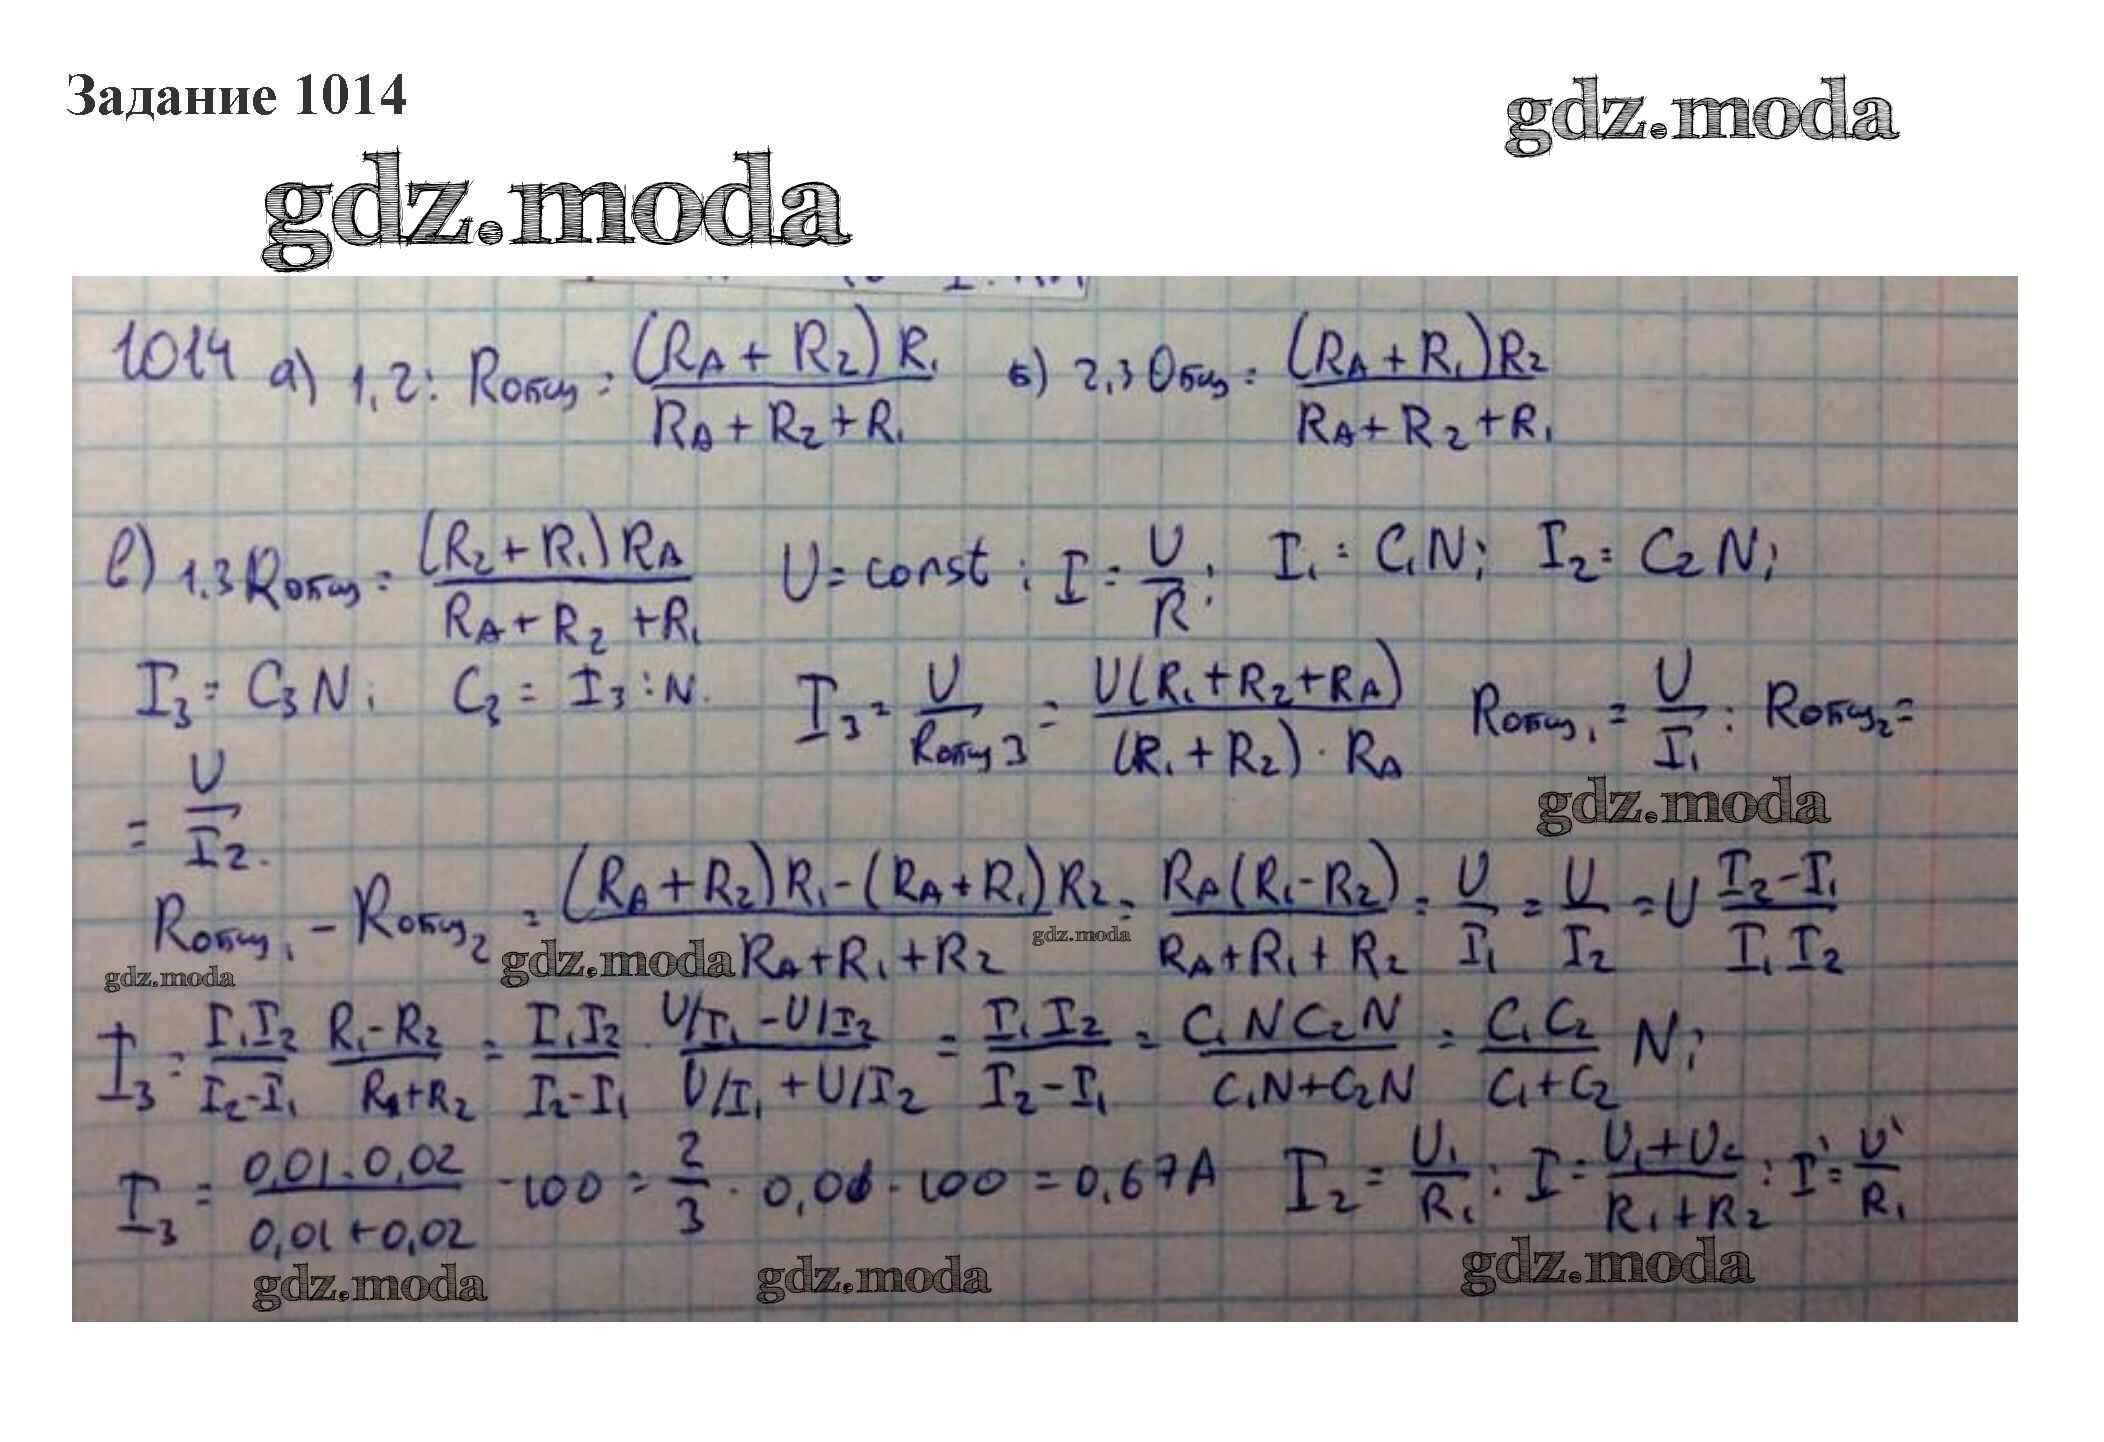 Задание 1014
gdz.moda
gdz.moda
1014 а) 1,2: Rобщ = (RA + R2) R1 / RA + R2 + R1 б) 2,3 Общ = (RA + R1) R2 / RA + R2 + R1
в) 1.3 Rобщ = (R2 + R1) RA / RA + R2 + R1 U = const ; I = U/R ; I1 = C1N; I2 = C2N;
I3 = C3N; C3 = I3 : N. I3 = U / Rобщ3 = U(R1 + R2 + RA) / (R1 + R2) · RA Rобщ1 = U / I1 : Rобщ2 =
= U / I2.
gdz.moda
Rобщ1 - Rобщ2 = (RA + R2) R1 - (RA + R1) R2 / RA + R1 + R2 = RA (R1 - R2) / RA + R1 + R2 = U / I1 = U / I2 = U I2 - I1 / I1 I2
gdz.moda gdz.moda gdz.moda
I3 = I1 I2 / I2 - I1 R1 - R2 / R1 + R2 = I1 I2 / I2 - I1 · U/I1 - U/I2 / U/I1 + U/I2 = I1 I2 / I2 - I1 = C1 N C2 N / C1N + C2N = C1 C2 / C1 + C2 N;
I3 = 0,01 · 0,02 / 0,01 + 0,02 · 100 = 2/3 · 0,01 · 100 = 0,67 A I2 = U1 / R1 : I = U1 + U2 / R1 + R2 : I' = U' / R1
gdz.moda gdz.moda gdz.moda